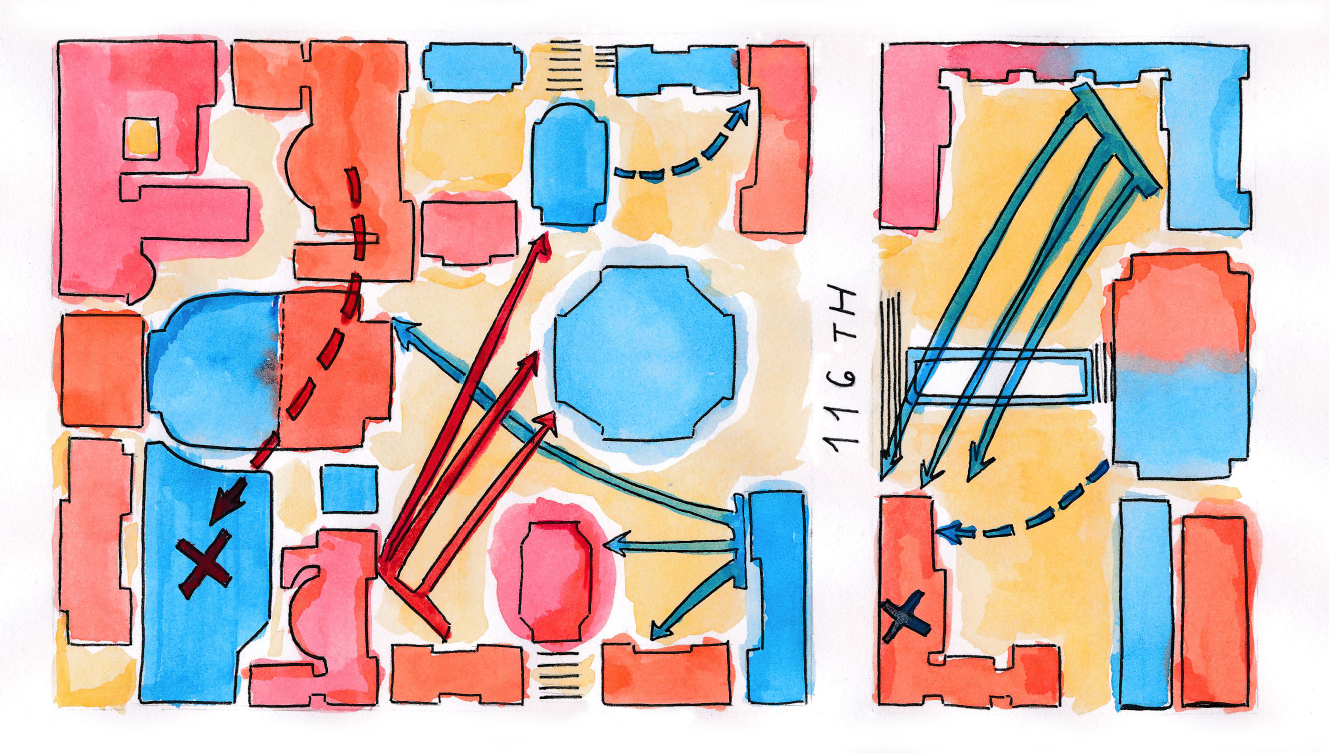 116 TH